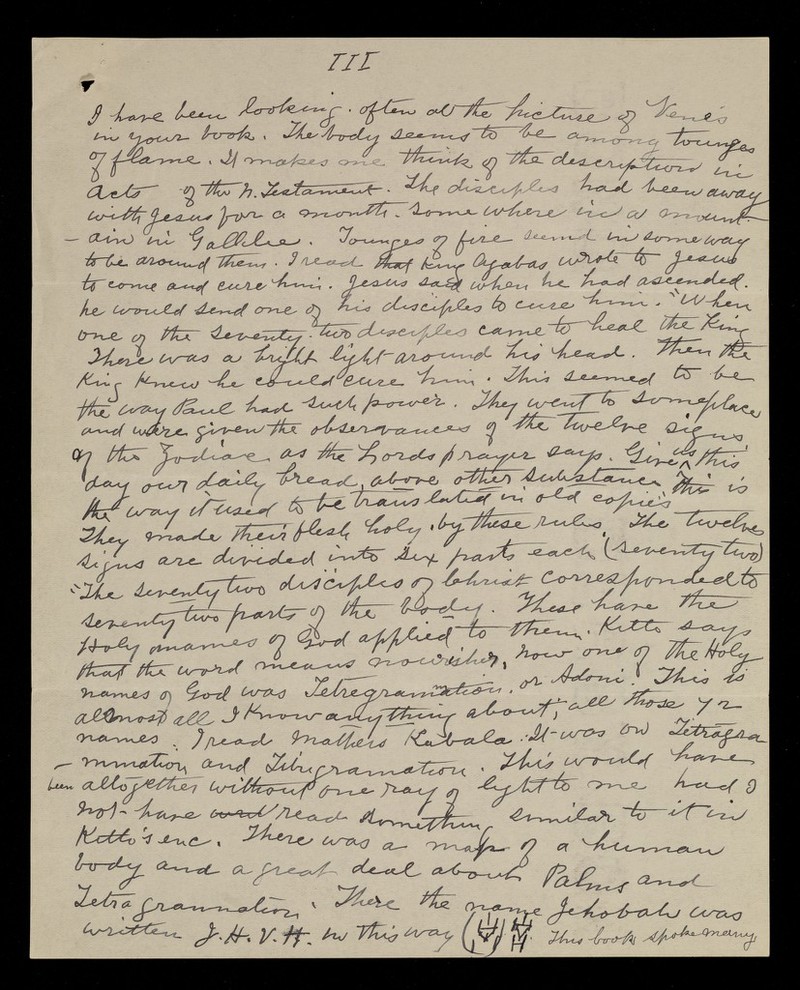 III
I have been looking. often at the picture of Vene's
in your book. The body seems to be among tounges
of flame. It makes me think of the description in
Acts of the N. Testament. The disciples had been away
with Jesus for a month. Some where in a mount-
- ain in Gallilee. Tounges of fire seemd in some way
to be around them. I read that King Agabas wrote to Jesus
to come and cure him. Jesus said when he had ascended.
he would send one of his disciples to cure him. "When
one of the Seventy. two disciples came to heal the King
There was a bright light around his head. Then the
King Knew he could cure him. This seemed to be
the way Paul had such power. They went to some place
and were given the observances of the twelve signs
of the Zodiac as the Lords prayer says. Give us this
day our daily bread, above other substance" This is
the way it used to be translated in old copies
They made their flesh holy. by these rules. The twelve
signs are divided into Six parts each (seventy two)
"The seventy two disciples of Christ corresponded to
seventy two parts of the body. These have the
Holy names of God applied to them. Kitto says
that the word means nourisher, now one of the Holy
names of God was Tetregramation. or Adoni. This is
allmost all I Know anything about, all those 72
names. I read Mathers Kabala. It was on Tetragra
- mmation and Tetrigramation. This would have
been alltogether without one ray of light to me had I
not have read something similar to it in
Kitto's enc. There was a map of a human
body and a great deal about Palms and
Tetragrannation. There the name Jehobah was
written J.H.V.H. in this way This book spoke many